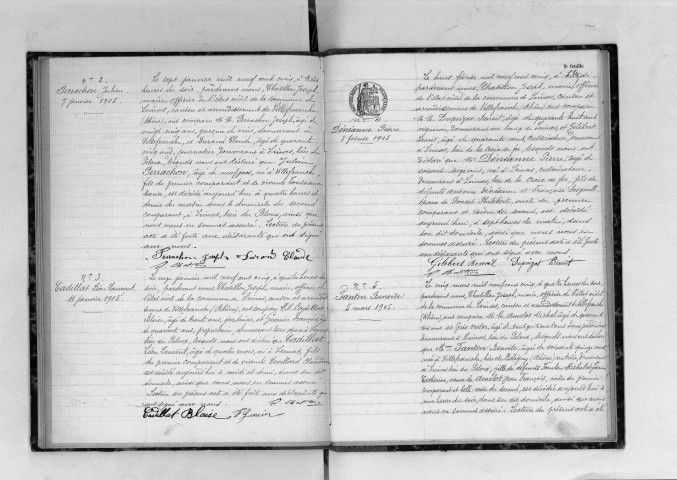 N° 2.
Perrachon Julien
7 janvier 1905.
Le sept janvier mil neuf cent cinq, à trois
heures du soir, pardevant nous, Chatillon Joseph,
maire, officier de l'état civil de la commune de
Limas, canton et arrondissement de Villefranche
(Rhône), ont comparu M.M. Perrachon Joseph, âgé de
vingt cinq ans, garçon de , demeurant à
Villefranche, et Durand Claude, âgé de quarante
cinq ans, journalier, demeurant à Limas, lieu de
Belous, lesquels nous ont déclaré que Julien
Perrachon, âgé de neuf mois, né à Villefranche
fils du premier comparant et de vivante
Marie, est décédé aujourd'hui à quatre heures et
demie du matin dans le domicile du second
comparant, à Limas, lieu de Belous, ainsi que
nous nous en sommes assuré. Lecture du présent
acte a été faite aux déclarants qui ont signé
avec nous.
Perrachon Joseph Durand Claude
N° 3.
Cadillat Léon Laurent
11 janvier 1905.
Le onze janvier mil neuf cent cinq, à quatre heures du
soir, pardevant nous Chatillon Joseph, maire, officier de
l'état civil de la commune de Limas, canton et arrondisse-
ment de Villefranche (Rhône), ont comparu M.M. Cadillat
Blaise, âgé de trente ans, jardinier, et Guerrier François, âgé
de quarante ans, propriétaire, demeurant tous deux à Limas,
lieu de Belous, lesquels nous ont déclaré que Cadillat
Léon Laurent, âgé de quatre mois, né à Limas, fils
du premier comparant et de vivante
est décédé aujourd'hui à midi et demi, dans son dit
domicile, ainsi que nous nous en sommes assuré.
Lecture du présent acte a été faite aux déclarants qui
ont signé avec nous.
Cadillat Blaise
2e feuille
N° 4
Dénianne Pierre
8 février 1905
Le huit février mil neuf cent cinq, à
pardevant nous, Chatillon Joseph, maire, officier
de l'état civil de la commune de Limas, canton et
arrondissement de Villefranche, (Rhône) ont comparu
M.M. Benoit, âgé de quarante huit ans
vigneron, demeurant au bourg de , et Gilibert
Benoit, âgé de quarante ans, cultivateur, demeurant
à Limas, lieu de la Croix de fer, lesquels nous ont
déclaré que M. Dénianne Pierre, âgé de
soixante ans, né à Limas, cultivateur,
demeurant à Limas, lieu de la Croix de fer, fils de
défunts Antoine Dénianne et Françoise
époux de Poncet Philiberte, oncle du premier
comparant et voisin du second, est décédé
aujourd'hui, à sept heures du matin, dans
son dit domicile, ainsi que nous nous en
sommes assuré. Lecture du présent acte a été faite
aux déclarants qui ont signé avec nous.
Gilibert Benoit Benoit
N° 5
Fanton Benoite
2 mai 1905.
Le deux mai mil neuf cent cinq, à quatre heures du soir
pardevant nous, Chatillon Joseph, maire, officier de l'état civil
de la commune de Limas, canton et arrondissement de Villefranche
(Rhône), ont comparu M.M. Michel, âgé de quarante
ans et Victor, âgé de ans, tous deux jardiniers
demeurant à Limas, lieu de Belous, lesquels nous ont déclaré
que Mme Fanton Benoite, âgée de soixante cinq ans,
née à Villefranche, (Rhône), rentière, demeurant
à Limas lieu de Belous, fille de défunts Fanton Michel et
Catherine, veuve de Jean François, mère du premier
comparant et belle-mère du second, est décédée aujourd'hui à
une heure du soir, dans son dit domicile, ainsi que nous
nous en sommes assuré. Lecture du présent acte a été